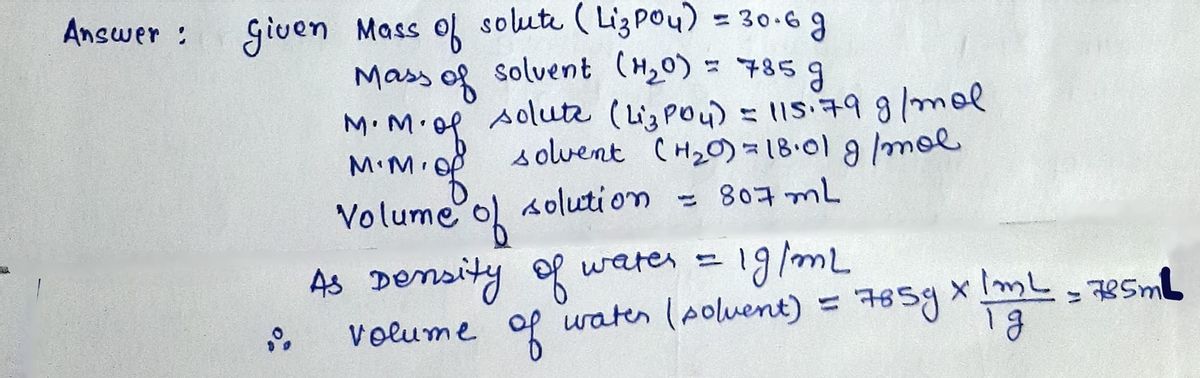 Answer : Given Mass of solute (Li₃PO₄) = 30.6 g
Mass of solvent (H₂O) = 785 g
M.M.of solute (Li₃PO₄) = 115.79 g/mol
M.M.of solvent (H₂O) = 18.01 g/mol
Volume of solution = 807 mL
As Density of water = 1g/mL
∴ volume of water (solvent) = 785g × 1mL/1g = 785mL